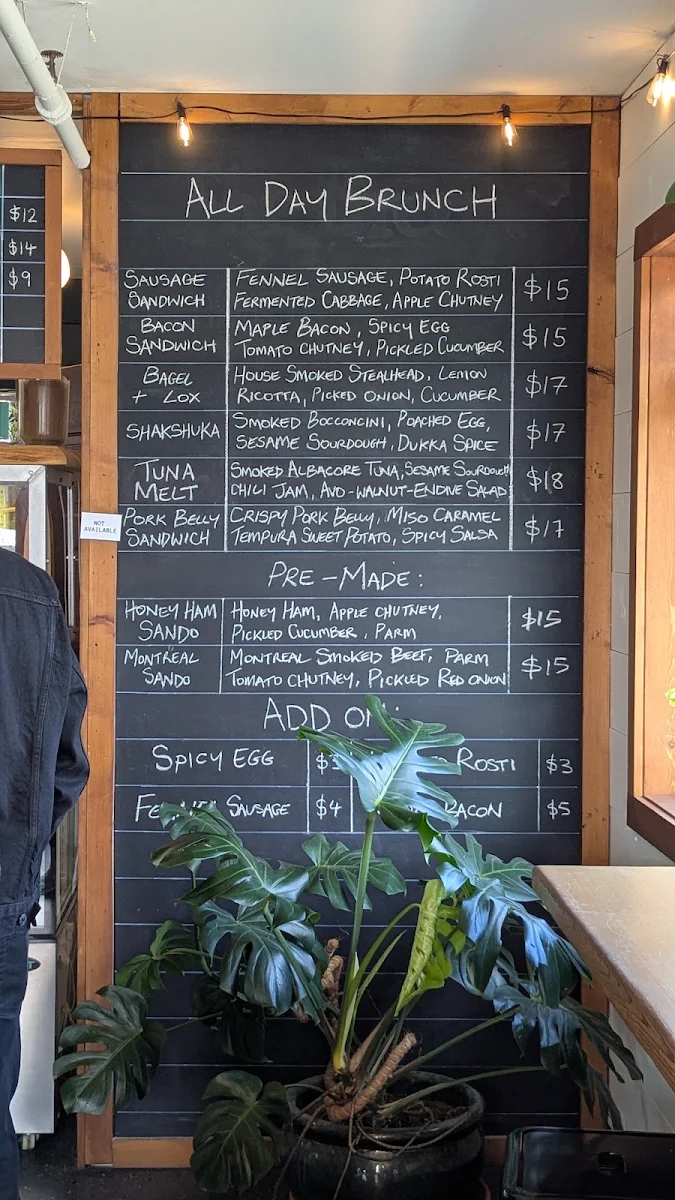 $12
$14
$9
ALL DAY BRUNCH
SAUSAGE SANDWICH
FENNEL SAUSAGE, POTATO ROSTI
FERMENTED CABBAGE, APPLE CHUTNEY
$15
BACON SANDWICH
MAPLE BACON, SPICY EGG
TOMATO CHUTNEY, PICKLED CUCUMBER
$15
BAGEL + LOX
HOUSE SMOKED STEALHEAD, LEMON
RICOTTA, PICKED ONION, CUCUMBER
$17
SHAKSHUKA
SMOKED BOCCONCINI, POACHED EGG,
SESAME SOURDOUGH, DUKKA SPICE
$17
TUNA MELT
SMOKED ALBACORE TUNA, SESAME SOURDOUGH
CHILI JAM, AVO-WALNUT-ENDIVE SALAD
$18
NOT AVAILABLE
PORK BELLY SANDWICH
CRISPY PORK BELLY, MISO CARAMEL
TEMPURA SWEET POTATO, SPICY SALSA
$17
PRE-MADE:
HONEY HAM SANDO
HONEY HAM, APPLE CHUTNEY,
PICKLED CUCUMBER, PARM
$15
MONTREAL SANDO
MONTREAL SMOKED BEEF, PARM
TOMATO CHUTNEY, PICKLED RED ONION
$15
ADD ON:
SPICY EGG
ROSTI $3
FENNEL SAUSAGE $4
BACON $5